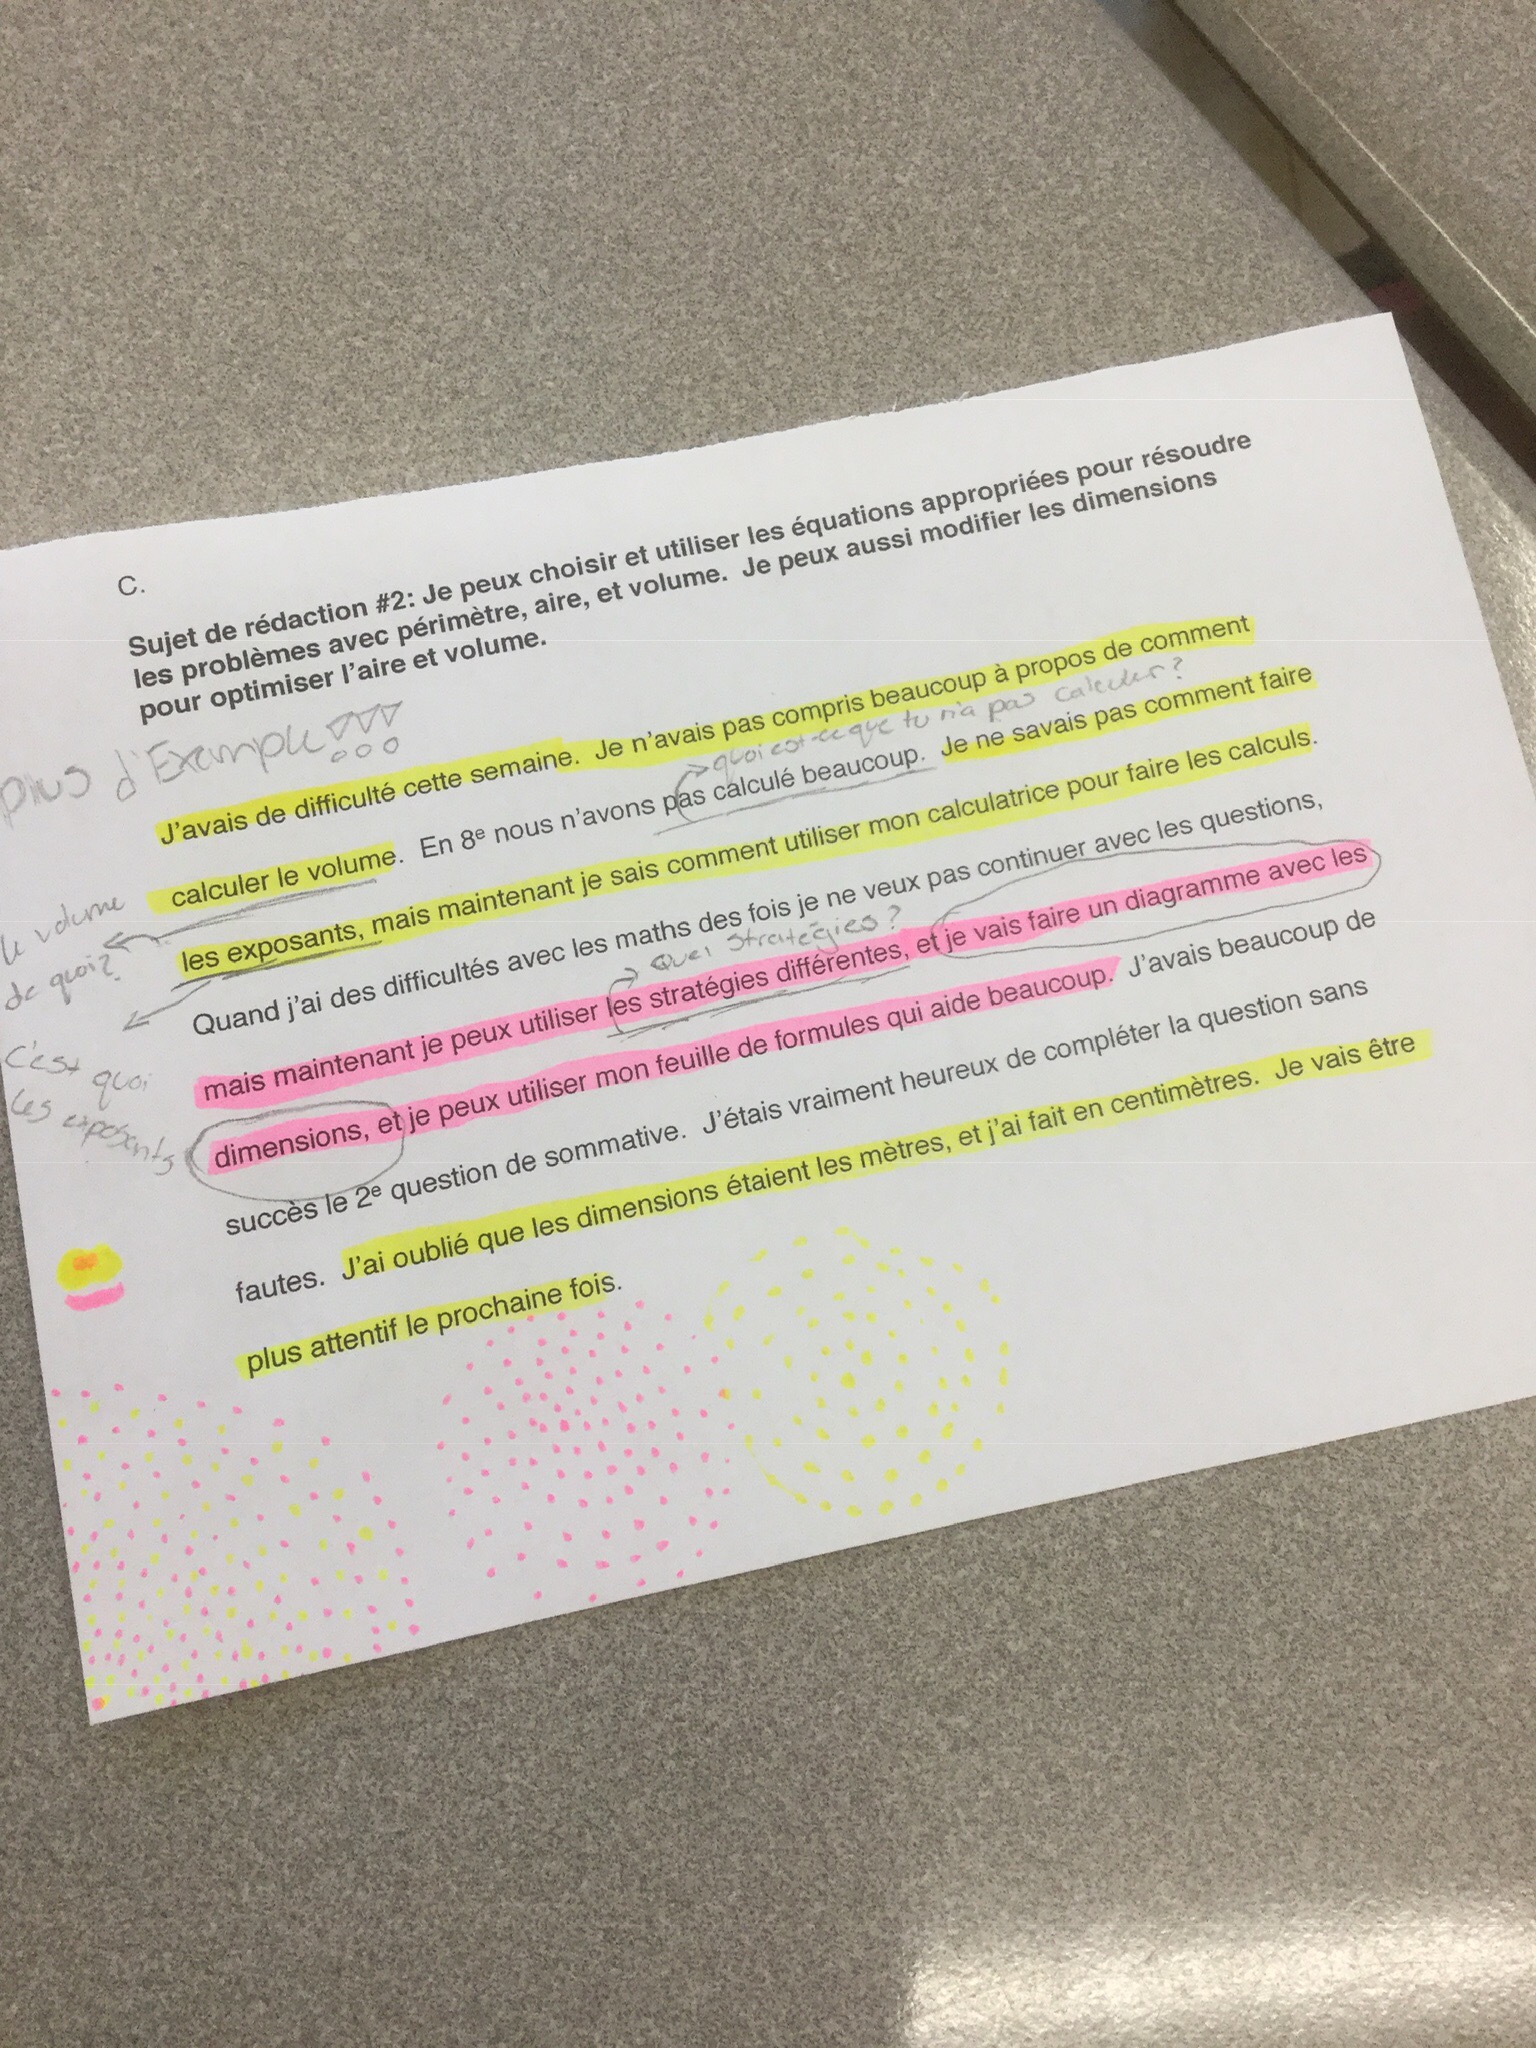 C.
Sujet de rédaction #2: Je peux choisir et utiliser les équations appropriées pour résoudre
les problèmes avec périmètre, aire, et volume. Je peux aussi modifier les dimensions
pour optimiser l'aire et volume.
plus d'Exemple
J'avais de difficulté cette semaine. Je n'avais pas compris beaucoup à propos de comment
quoi est-ce que tu n'a pas calculer?
calculer le volume. En 8e nous n'avons pas calculé beaucoup. Je ne savais pas comment faire
le volume
de quoi?
les exposants, mais maintenant je sais comment utiliser mon calculatrice pour faire les calculs.
C'est quoi
les exposants
Quand j'ai des difficultés avec les maths des fois je ne veux pas continuer avec les questions,
Quel stratégies?
mais maintenant je peux utiliser les stratégies différentes, et je vais faire un diagramme avec les
dimensions, et je peux utiliser mon feuille de formules qui aide beaucoup. J'avais beaucoup de
succès le 2e question de sommative. J'étais vraiment heureux de compléter la question sans
fautes. J'ai oublié que les dimensions étaient les mètres, et j'ai fait en centimètres. Je vais être
plus attentif le prochaine fois.